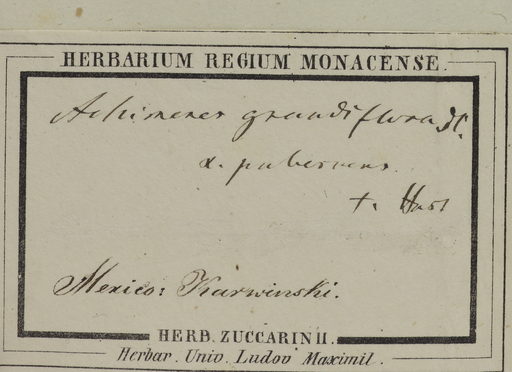 HERBARIUM REGIUM MONACENSE.
Achimenes grandiflora DC.
α. pubescens.
Mexico: Karwinski.
HERB. ZUCCARINII.
Herbar. Univ. Ludov Maximil.